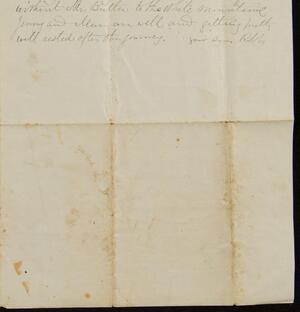 without Mr. Butler to the White Mountains
Jenny and Max are well and getting pretty
well rested after the journey. your